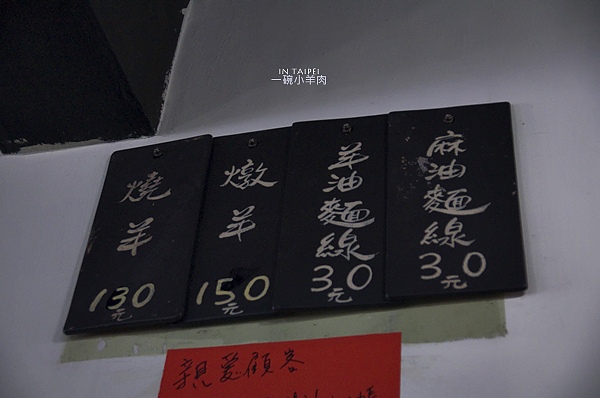 IN TAIPEI
一碗小羊肉
麻油麵線
30元
羊油麵線
30元
燉羊
150元
燒羊
130元
親愛顧客